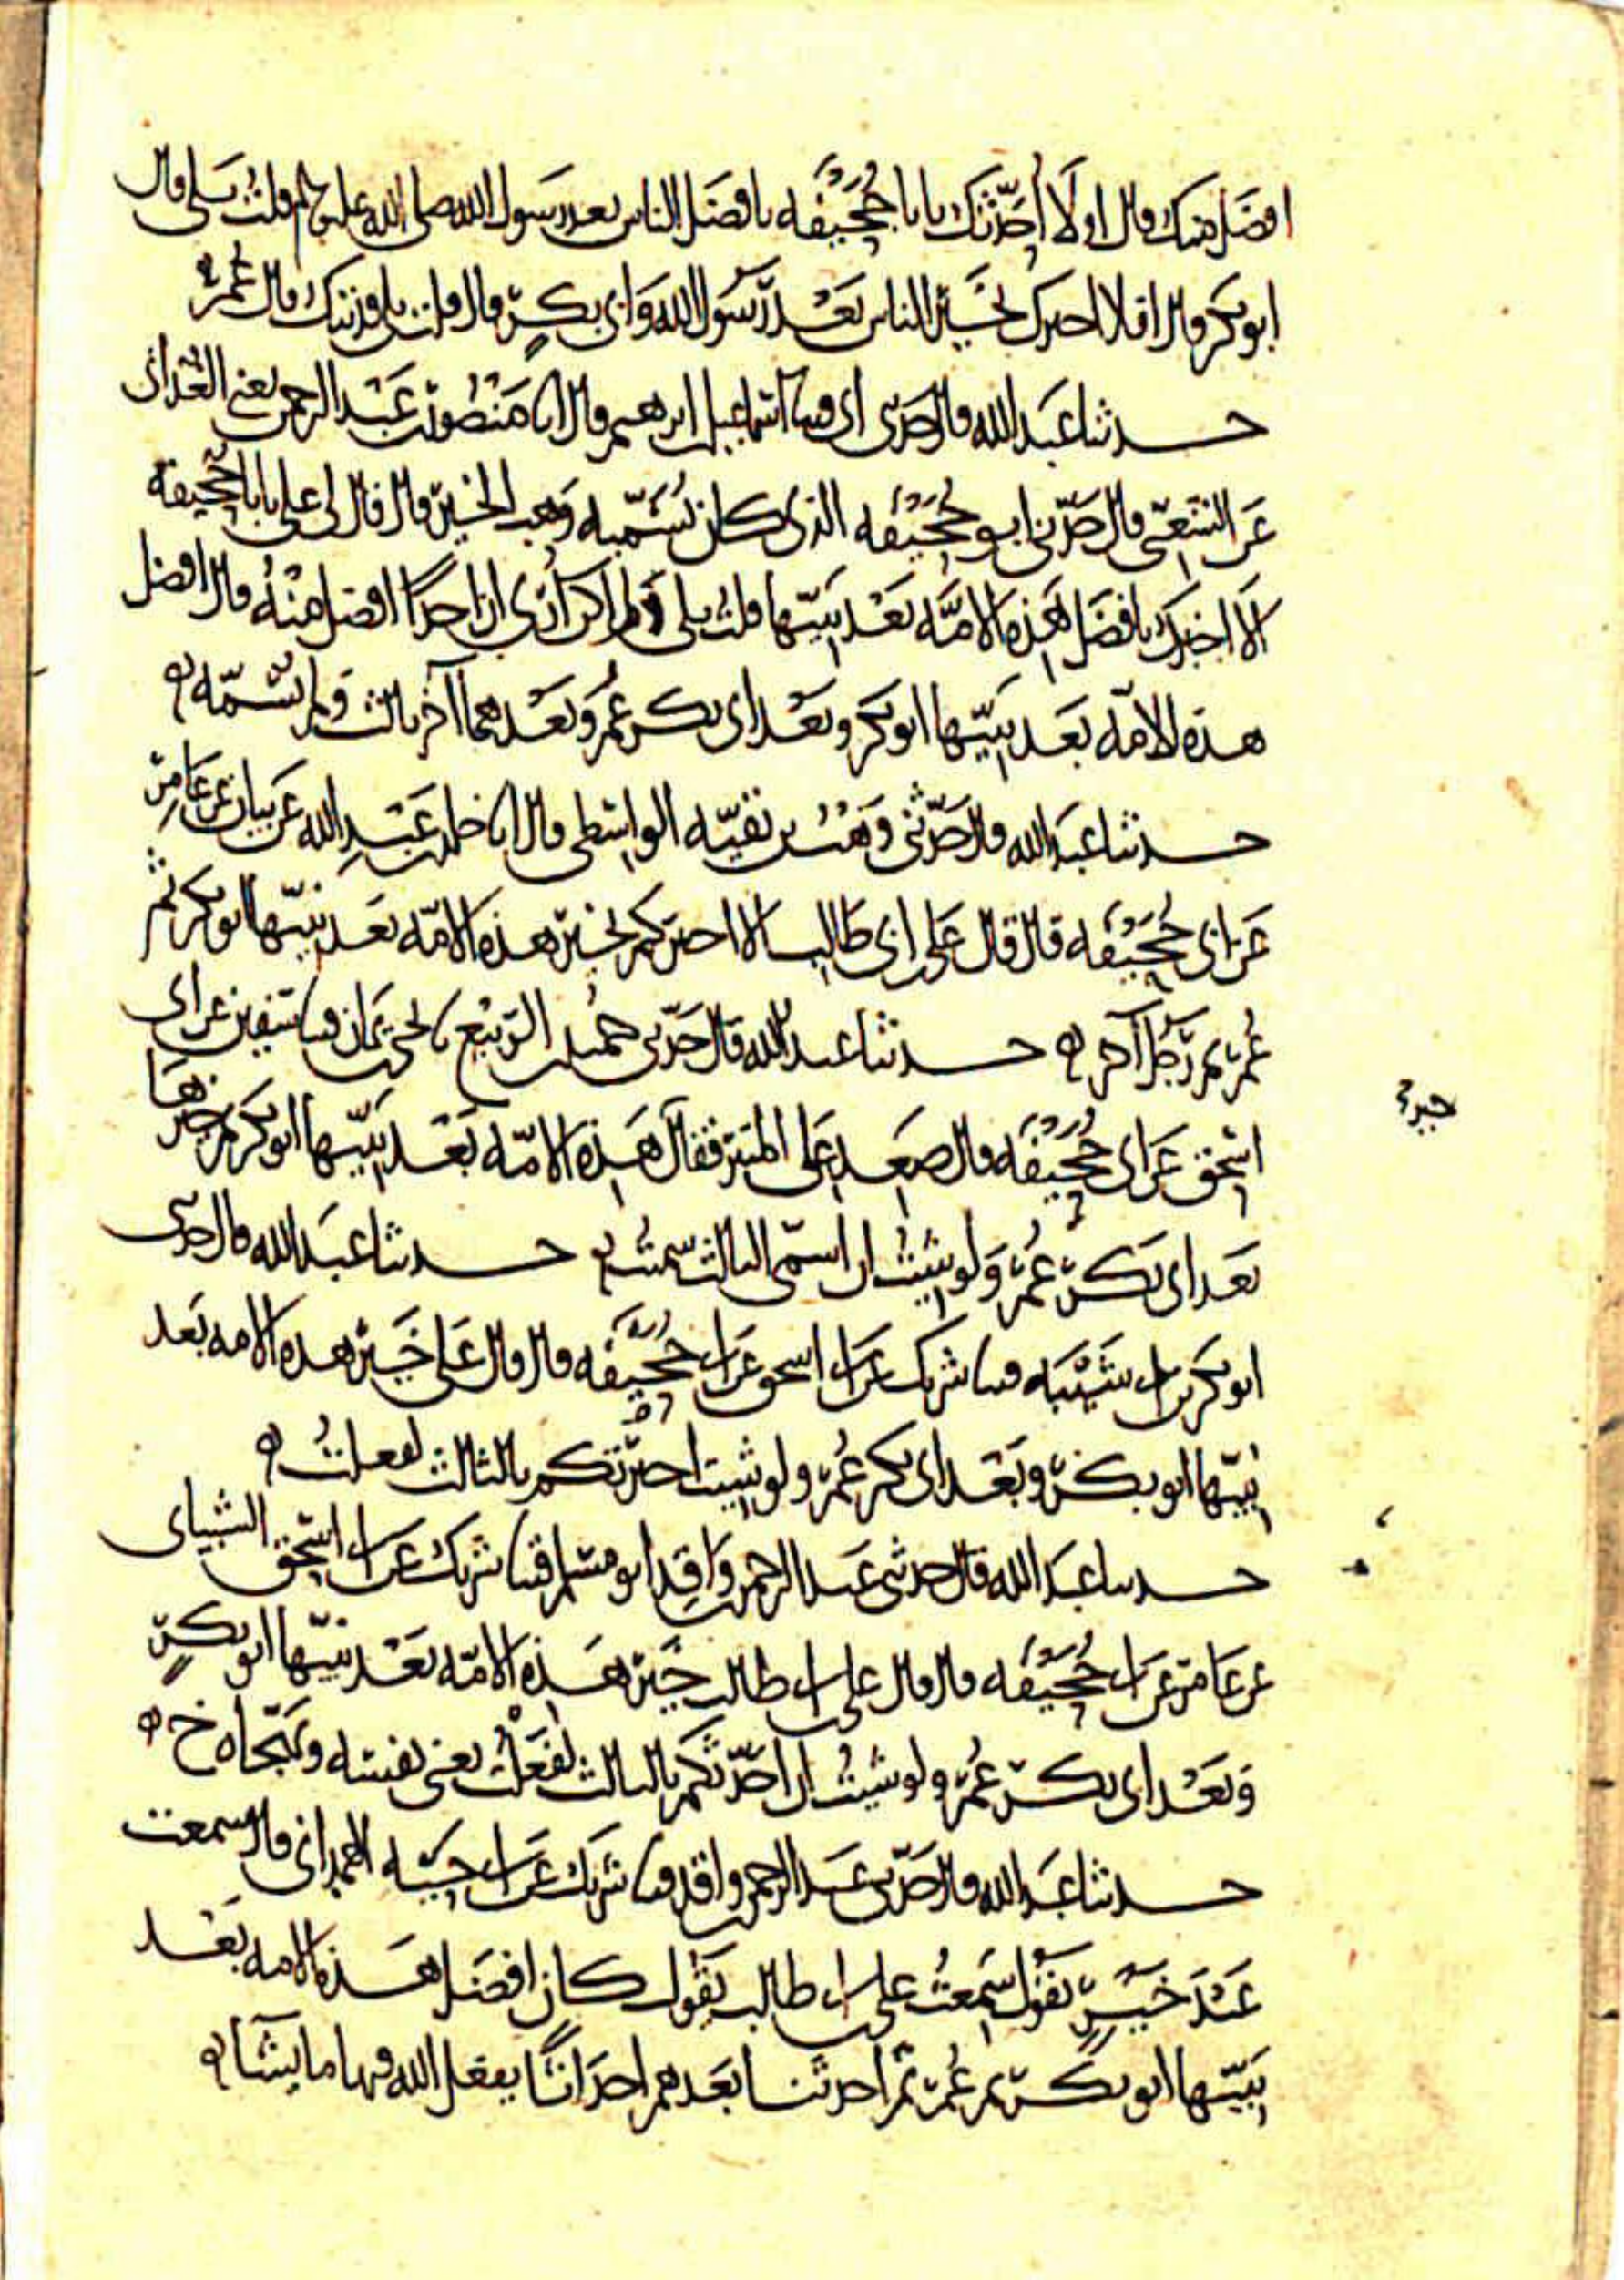 افضل منك قال اولا احدثك يابا جحيفه بافضل الناس بعد رسول الله صلى الله عليه وسلم قلت بلى قال
ابو بكر قال افلا اخبرك بخير الناس بعد رسول الله وابى بكر قال قلت بلى فديتك قال عمر
حدثنا عبد الله قال حدثنى ابى قثنا اسماعيل بن ابرهيم قال انا منصور بن عبد الرحمن يعنى الغدانى
عن الشعبى قال حدثنى ابو جحيفه الذى كان يسميه وهب الخير قال قال لى على يابا جحيفة
الا اخبرك بافضل هذه الامة بعد نبيها قلت بلى ولم اكن ارى ان احدا افضل منه قال افضل
هذه الامة بعد نبيها ابو بكر وبعد ابى بكر عمر وبعدهما آخر ثالث ولم يسمه
حدثنا عبد الله قال حدثنى وهب بن بقيه الواسطى قال انا خلد بن عبد الله عن بيان عن عامر
عن ابى جحيفه قال قال على بن ابى طالب الا اخبركم بخير هذه الامة بعد نبيها ابو بكر ثم
عمر ثم رجل آخر حدثنا عبد الله قال حدثنى حميد بن الربيع يحيى بن يمان قثنا سفين عن ابى
اسحق عن ابى جحيفه قال صعد على المنبر فقال هذه الامة بعد نبيها ابو بكر ثم خيرها
خير
بعد ابى بكر عمر ولو شئت ان اسمى الثالث سميته حدثنا عبد الله قال حدثنى
ابو بكر بن ابى شيبه قثنا شريك عن ابى اسحق عن ابى جحيفه قال قال على خير هذه الامه بعد
نبيها ابو بكر وبعد ابى بكر عمر ولو شيت اخبرتكم بالثالث لفعلت
حدثنا عبد الله قال حدثنى عبد الرحمن بن واقد ابو مسلم قثنا شريك عن ابى اسحق الشيبانى
عن عامر عن ابى جحيفه قال قال على بن ابى طالب خير هذه الامه بعد نبيها ابو بكر
وبعد ابى بكر عمر ولو شيت ان احدثكم بالثالث لفعلت يعنى نفسه خ
حدثنا عبد الله قال حدثنى عبد الرحمن بن واقد قثنا شريك عن ابى حيه الهمدانى قال سمعت
عبد خير يقول سمعت على بن ابى طالب يقول كان افضل هذه الامه بعد
نبيها ابو بكر ثم عمر ثم احدثنا بعدهم احداثا يفعل الله فيها ما يشآ